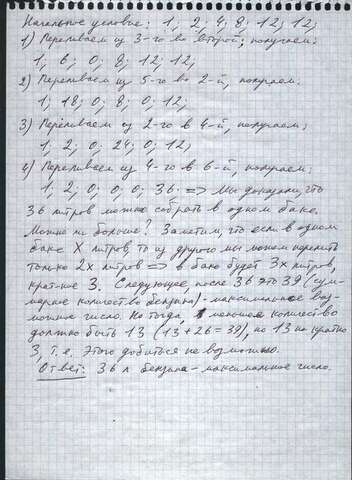 Начальное условие: 1; 2; 4; 8; 12; 12;
1) Переливаем из 3-го во второй; получаем:
1; 6; 0; 8; 12; 12;
2) Переливаем из 5-го во 2-й, получаем:
1; 18; 0; 8; 0; 12;
3) Переливаем из 2-го в 4-й, получаем;
1; 2; 0; 24; 0; 12;
4) Переливаем из 4-го в 6-й, получаем;
1; 2; 0; 0; 0; 36. => Мы доказали, что
36 литров можно собрать в одном баке.
Можно ли больше? Заметим, что если в одном
баке X литров, то из другого мы можем перелить
только 2x литров => в баке будет 3x литров,
кратное 3. Следующее, после 36 это 39 (сум-
марное количество бензина) - максимальное воз-
можное число. Но тогда меньшее количество
должно быть 13 (13+26=39), но 13 не кратно
3, т.е. Этого добиться не возможно.
Ответ: 36 л бензина - максимальное число.